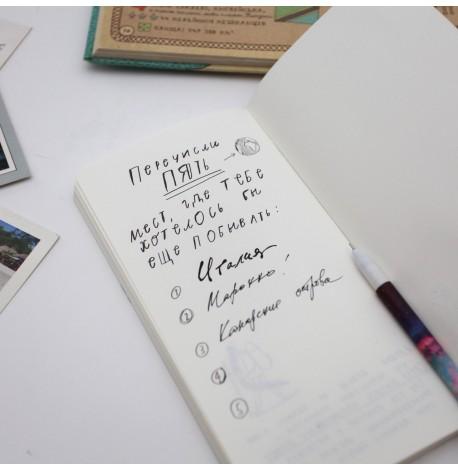 Перечисли
ПЯТЬ
мест, где тебе
хотелось бы
еще побывать:
① Италия
② Марокко!
③ Канарские острова
④
⑤